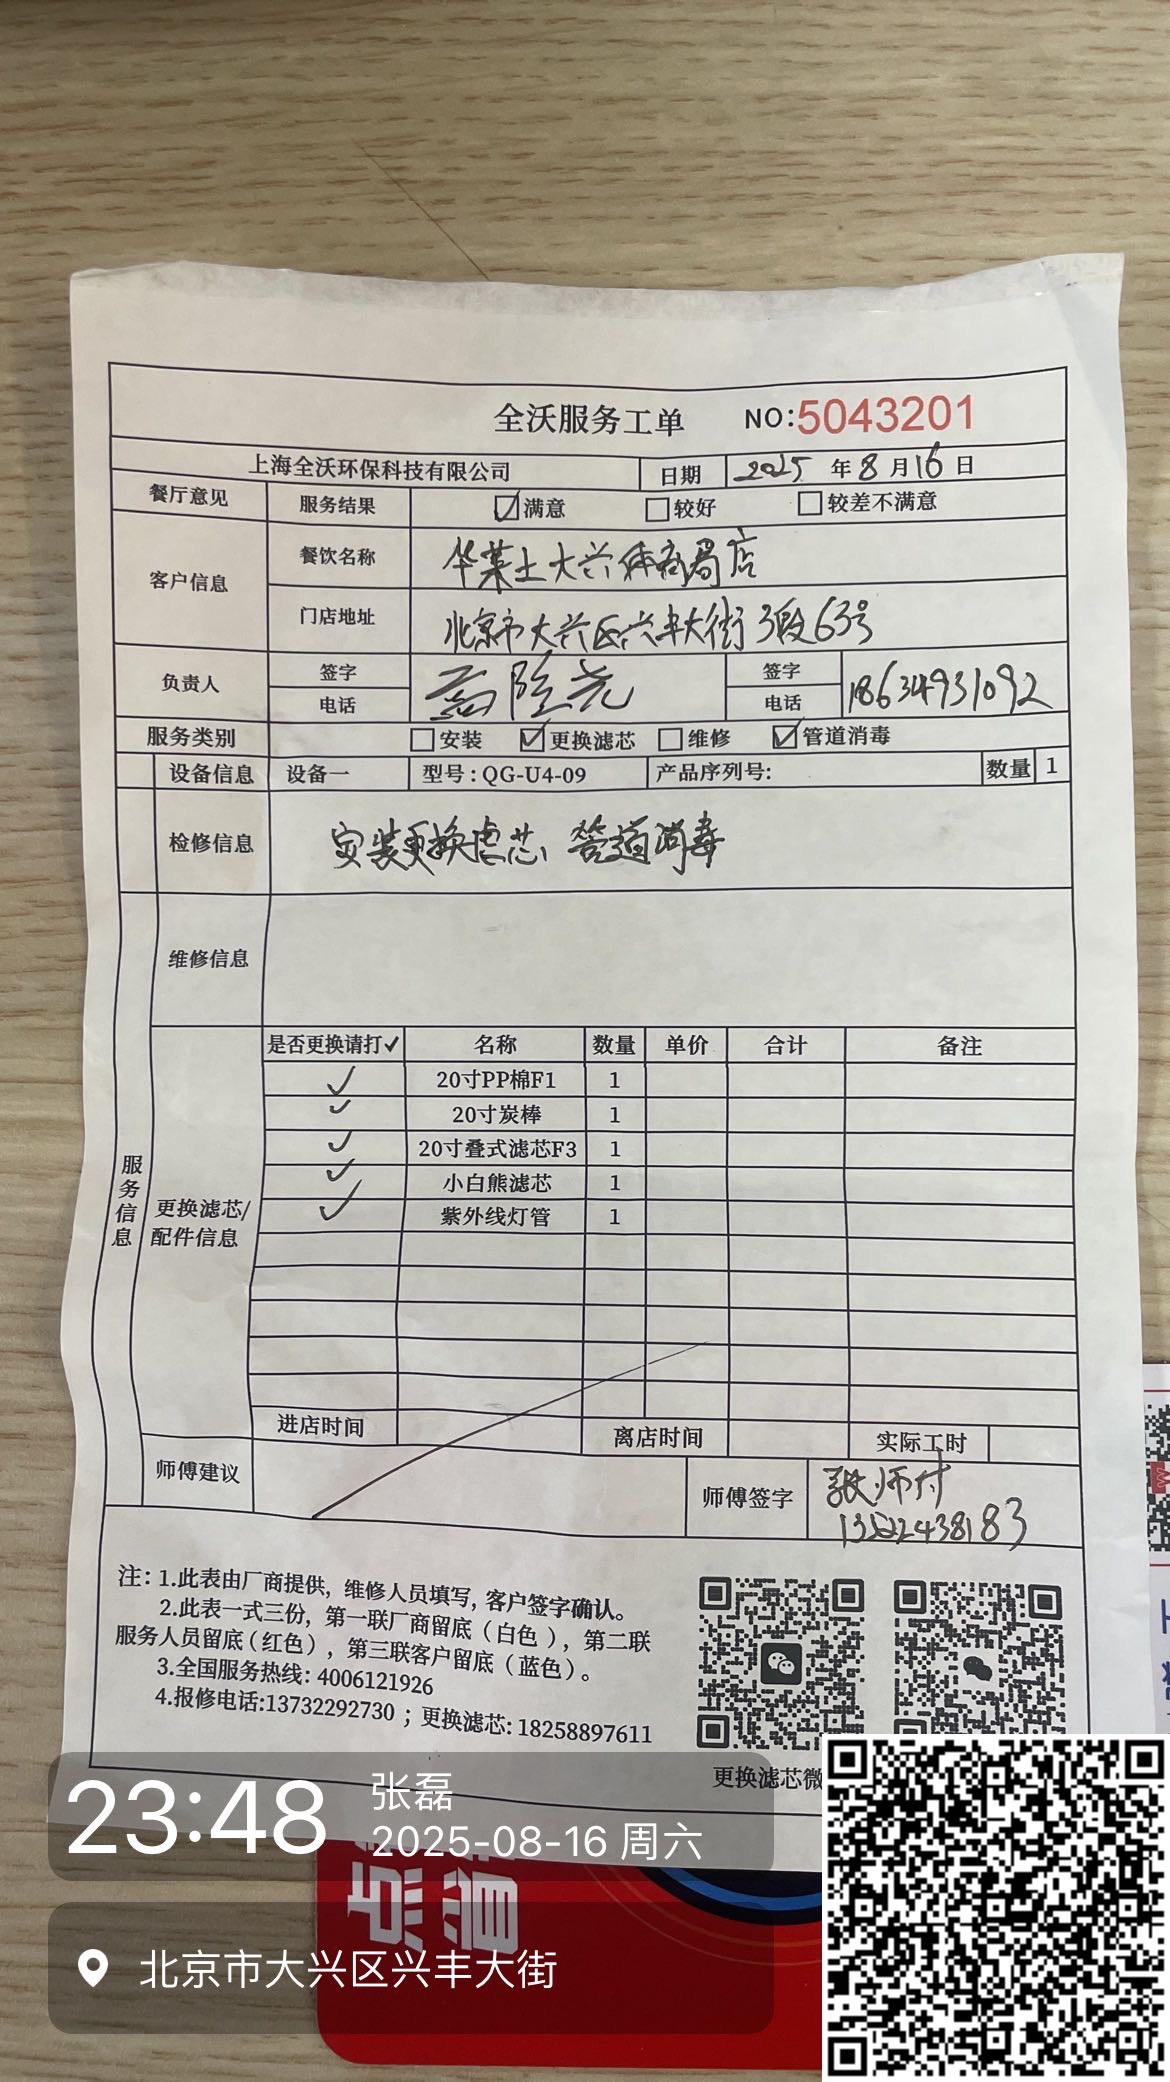 全沃服务工单 NO:5043201
上海全沃环保科技有限公司 日期 2025年8月16日
餐厅意见 服务结果 ☑满意 ☐较好 ☐较差不满意
客户信息 餐饮名称 华莱士大兴体育局店
门店地址 北京市大兴区兴丰大街3段63号
负责人 签字 签字
电话 电话 18634931092
服务类别 ☐安装 ☑更换滤芯 ☐维修 ☑管道消毒
设备信息 设备一 型号:QG-U4-09 产品序列号: 数量 1
检修信息 安装更换滤芯、管道消毒
维修信息
服务信息
更换滤芯/配件信息
是否更换请打✓ 名称 数量 单价 合计 备注
✓ 20寸PP棉F1 1
✓ 20寸炭棒 1
✓ 20寸叠式滤芯F3 1
✓ 小白熊滤芯 1
✓ 紫外线灯管 1
进店时间 离店时间 实际工时
师傅建议 师傅签字 张师付
13522438183
注: 1.此表由厂商提供, 维修人员填写, 客户签字确认。
2.此表一式三份, 第一联厂商留底(白色), 第二联
服务人员留底(红色), 第三联客户留底(蓝色)。
3.全国服务热线: 4006121926
4.报修电话:13732292730 ; 更换滤芯: 18258897611
更换滤芯微
23:48 张磊
2025-08-16 周六
北京市大兴区兴丰大街
点
省